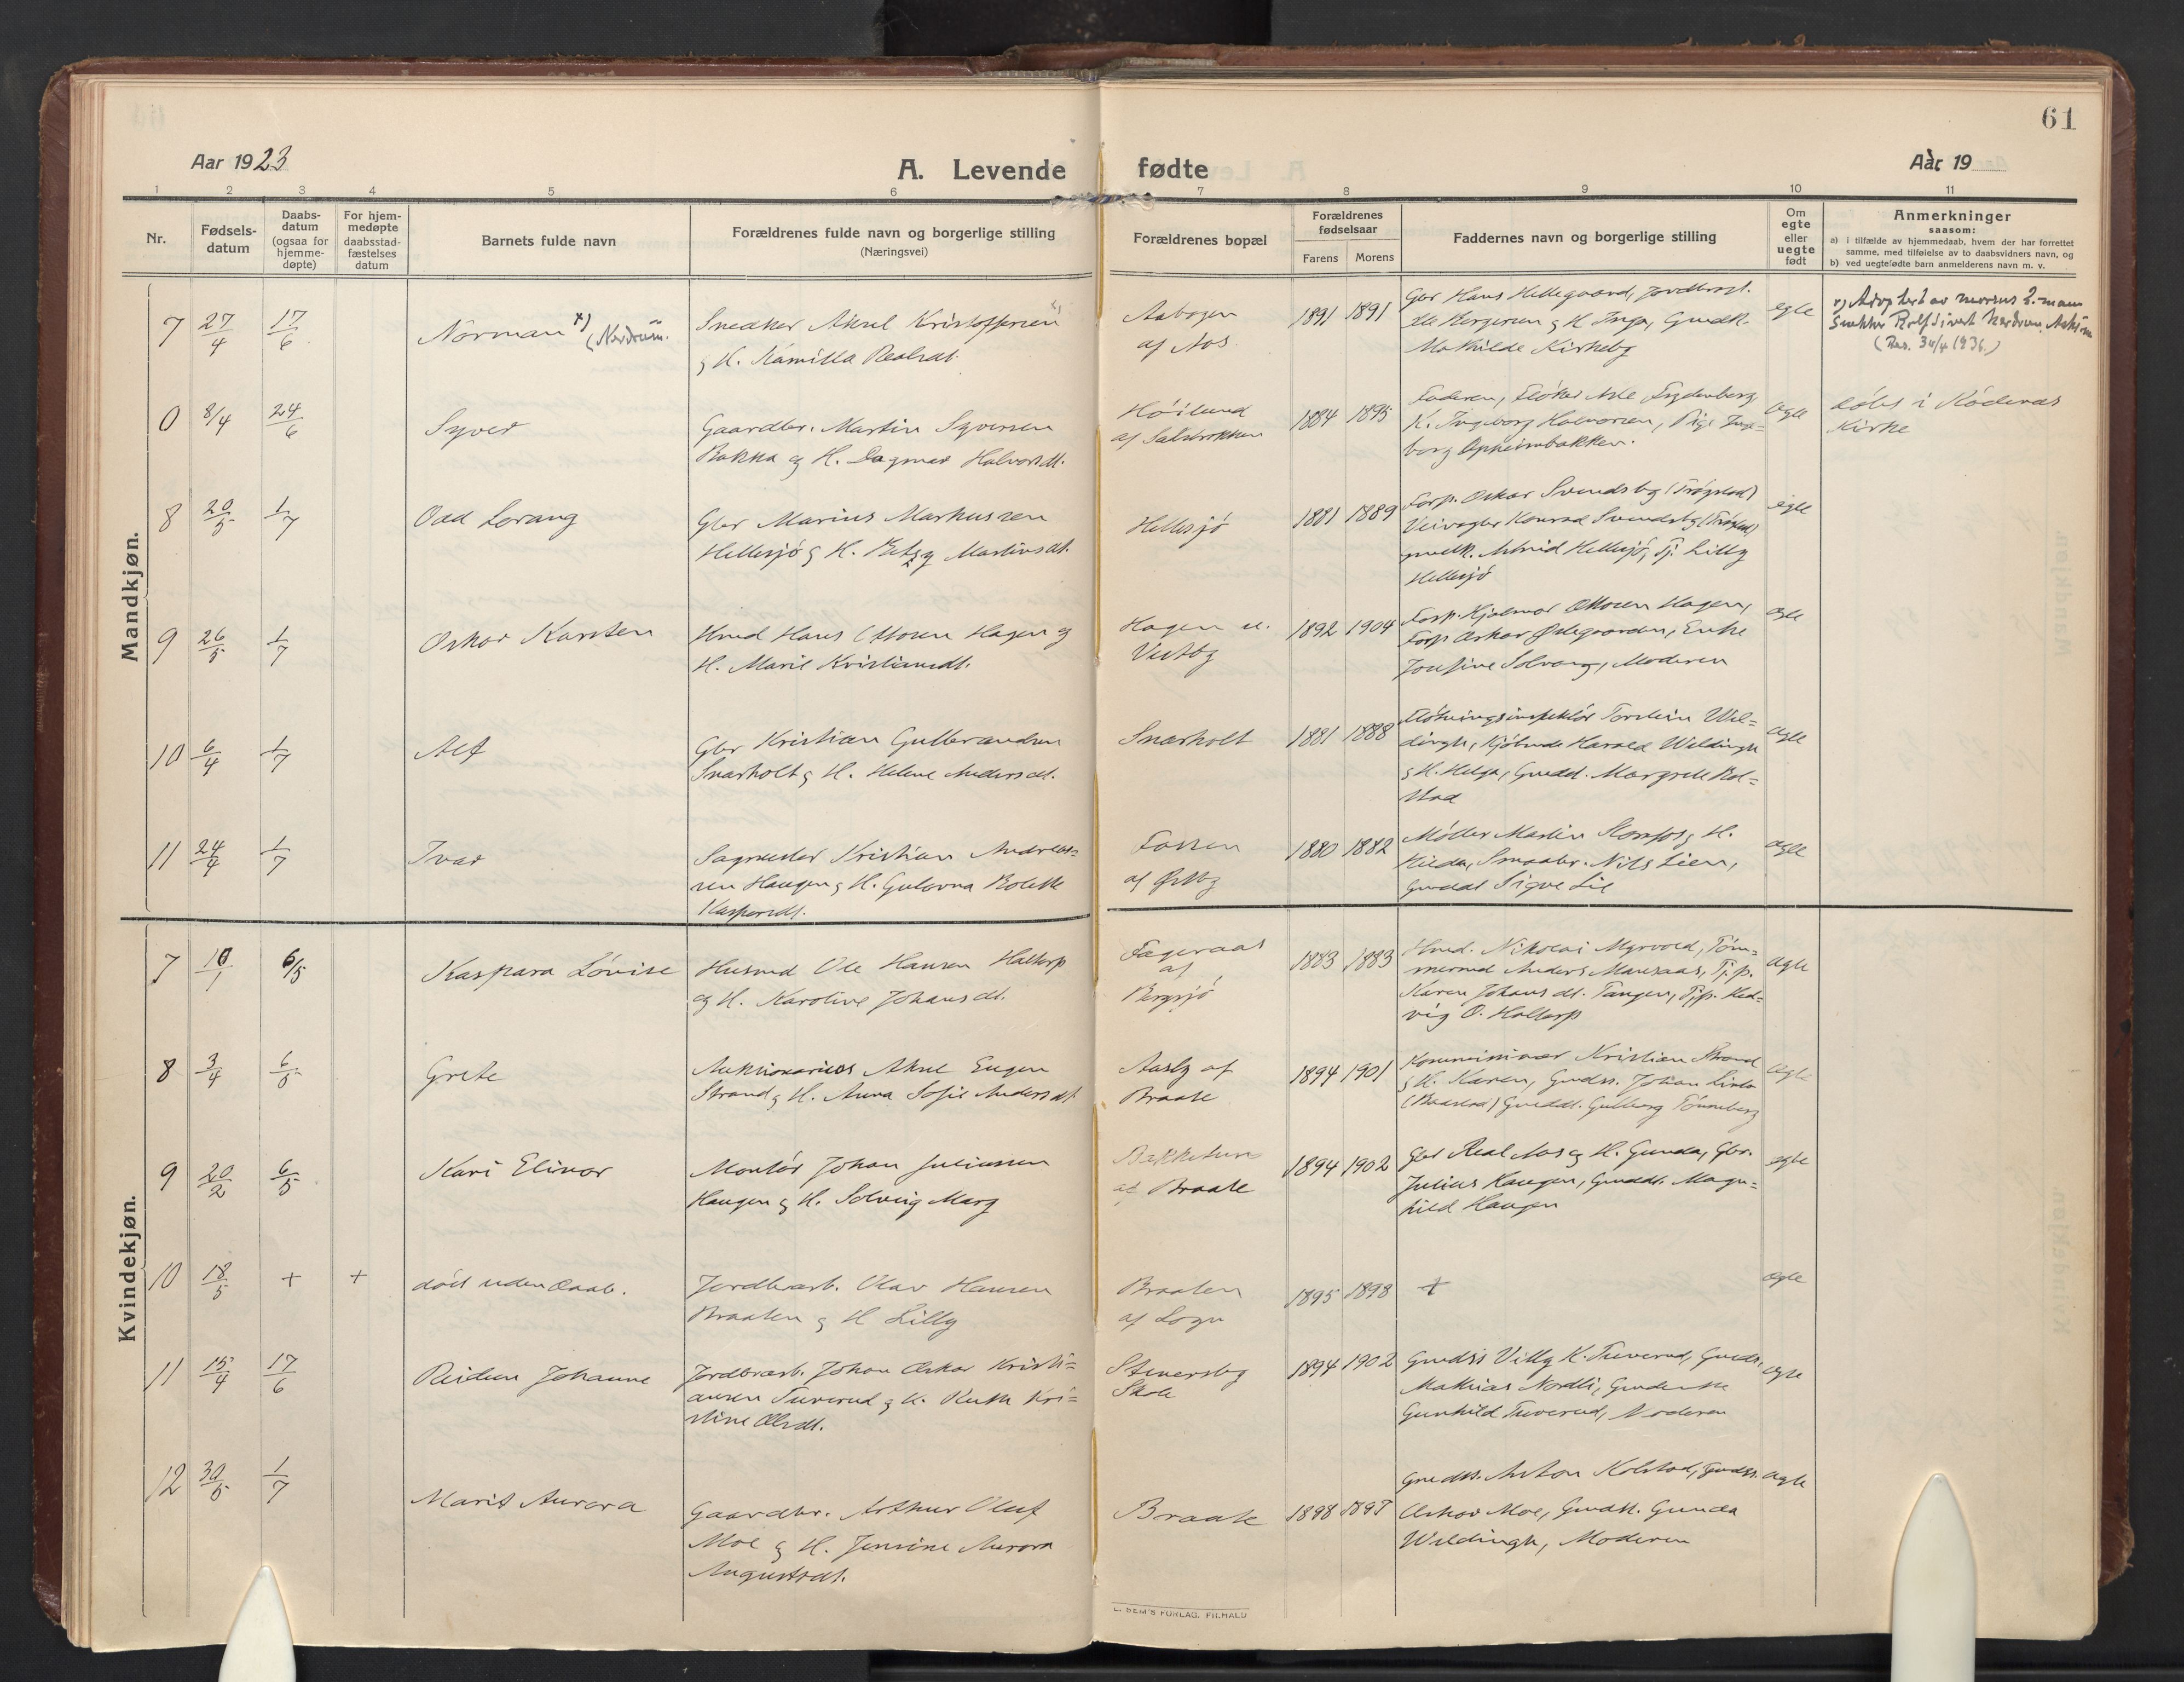 61
Aar 1923
A. Levende fødte
Aar 19
1 2 3 4 5 6 7 8 9 10 11
Nr.
Fødsels-
datum
Daabs-
datum
(ogsaa for
hjemme-
døpte)
For hjem-
medøpte
daabsstad-
fæstelses
datum
Barnets fulde navn
Forældrenes fulde navn og borgerlige stilling
(Næringsvei)
Forældrenes bopæl
Forældrenes
fødselsaar
Farens Morens
Faddernes navn og borgerlige stilling
Om
egte
eller
uegte
født
Anmerkninger
saasom:
a) i tilfælde av hjemmedaab, hvem der har forrettet
samme, med tilføielse av to daabsvidners navn, og
b) ved uegtefødte barn anmelderens navn m. v.
Mandkjøn.
7 27/4 17/6 Norman x) (Nerdrum.
Snedker Aksel Kristoffersen
og H. Kamilla Realsdt.
Aabogen
af Aos
1891 1891
Gbr Hans Hellegaard,
Ole Bergersen og H. Inga, Gmdk.
Mathilde Kirkeby
egte
x) Adoptert av morens 2. mann
Snekker Rolf Sivert Nerdrum, Askim
(Res. 30/4 1936.)
0 8/4 24/6 Syver
Gaardbr. Martin Syversen
Bakka og H. Dagmar Halvorsdt.
Høilund
af
1884 1895
Faderen, Fløter Nils Frydenberg,
K. Ingeborg Halvorsen, Pige Inge=
borg Opheimbakken.
egte
døbt i Rödenes
Kirke
8 20/5 1/7 Odd Lorang
Gbr Marius Markussen
Hellesjø og H. Betzy Martinsdt.
Hellesjø
1881 1889
Forp. Oskar Svendsby (Trøgstad)
Veivogter Konrad Svendsby (Trøgstad)
gmdk. Astrid Hellesjø, Tj. Lilly
Hellesjø
egte
9 26/5 1/7 Oskar Karsten
Hmd Hans Ottosen Hagen og
H. Marie Kristiansdt.
Hagen u.
Vestby
1892 1904
Forp. Hjalmar Ottosen Hagen,
Forp Oskar Østegaarden, Enke
Josefine Solvang, Moderen
egte
10 6/4 1/7 Alf
Gbr Kristian Gulbrandsen
Snarholt og H. Helene Andersdt.
Snarholt
1881 1888
Fløtningsinspektør Torstein Wel=
dingh, Kjøbmd Harald Weldingh
og H. Helga, Gmdd. Margrete Kol=
stad
egte
11 24/4 1/7 Ivar
Sagmester Kristian Andreas=
sen Haugen og H. Gulovna Bolette
Kaspersdt.
Fossen
af Østby
1880 1882
Møller Martin og H.
Hilda, Smaabr. Nils Lien,
Gmddt Signe Lie
egte
Kvindekjøn.
7 10/1 6/5 Kaspara Lovise
Husmd Ole Hansen Haltorp
og H. Karoline Johansdt.
Fageraas
af
Bergsjø
1883 1883
Hmd. Nikolai Myrvold, Tøm=
mermd Anders Mansaas, Tj. p.
Karen Johansdt. Tangen, Tj. p. Hed=
vig O. Haltorp
egte
8 3/4 6/5 Grete
Auktionarius Aksel Eugen
Strand og H. Anna Sofie Andersdt
Aasly af
Braate
1894 1901
Kommissionær Kristian Strand
og H. Karen, Gmdss. Johan
(Baastad) Gmddt. Gulborg Tønneberg
egte
9 20/2 6/5 Kari Elinor
Montør Johan Juliussen
Haugen og H. Solveig Marg
Bakketun
af Braate
1894 1902
Gbr Real Aos og H. Gunda, Gbr.
Julius Haugen, Gmddt. Magn=
hild Haugen
egte
10 18/5 + + død uden daab.
Jordbrarb. Olav Hansen
Braaten og H Lilly
Braaten
af Logn
1895 1898
+
egte
11 15/4 17/6 Reidun Johanne
Jordbrarb. Johan Oskar Kristi=
ansen Tuverud og H. Ruth Kri=
stine Olsdt.
Stenersby
Skole
1894 1902
Gmdss Villy K. Tuverud, Gmdss.
Mathias Nordli,
Gunhild Tuverud, Moderen
egte
12 30/5 1/7 Marit Aurora
Gaardbr. Arthur Oluf
Moe og H. Jensine Aurora
Augustsdt.
Braate
1898 1897
Gmdss. Anton Kolstad, Gmdss.
Oskar Moe, Gmddt. Gunda
Weldingh, Moderen
egte
E. SEM'S FORLAG, FR.HALD